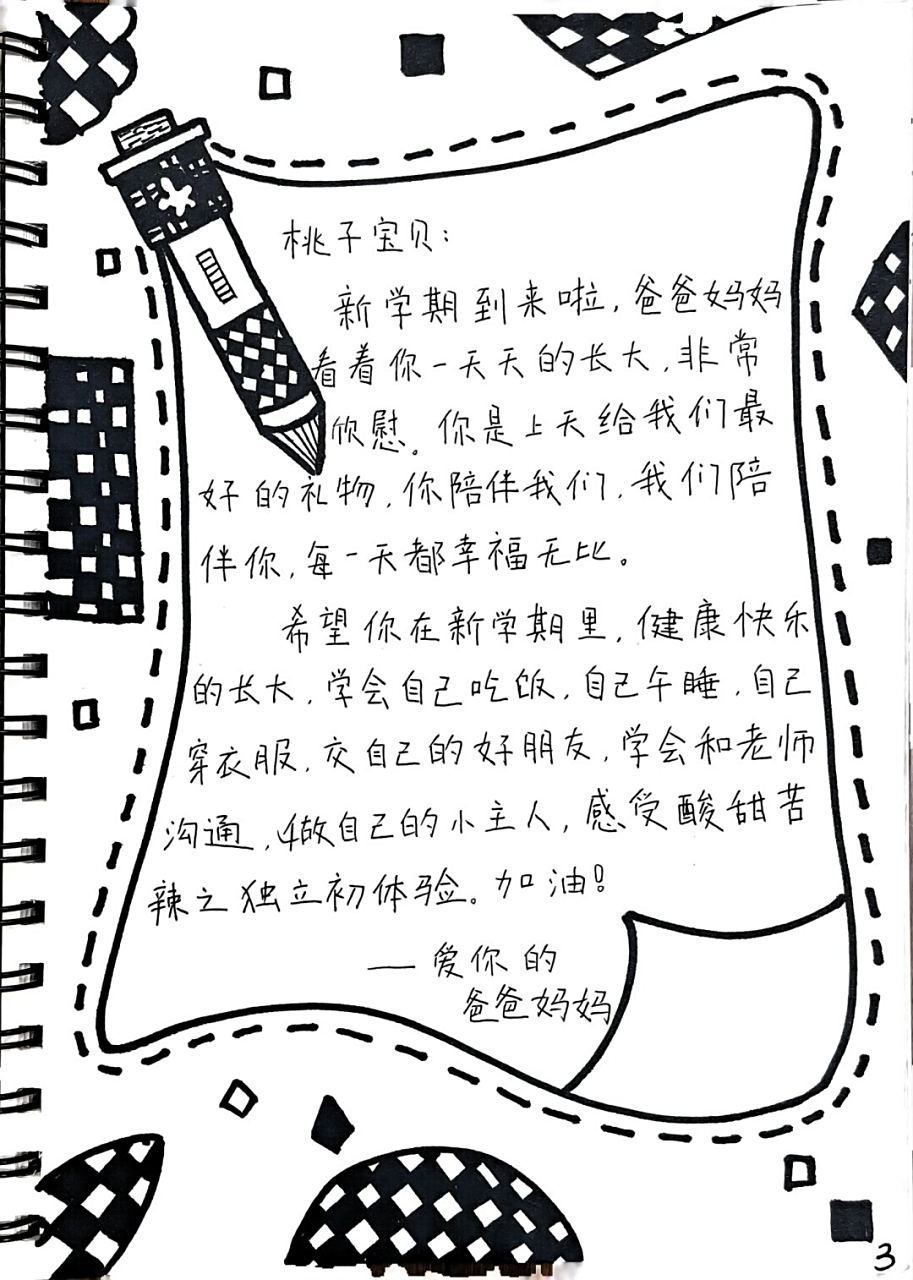 桃子宝贝：
新学期到来啦，爸爸妈妈
看着你一天天的长大，非常
欣慰。你是上天给我们最
好的礼物，你陪伴我们，我们陪
伴你，每一天都幸福无比。
希望你在新学期里，健康快乐
的长大，学会自己吃饭，自己午睡，自己
穿衣服，交自己的好朋友，学会和老师
沟通，做自己的小主人，感受酸甜苦
辣之独立初体验。加油！
——爱你的
爸爸妈妈
3